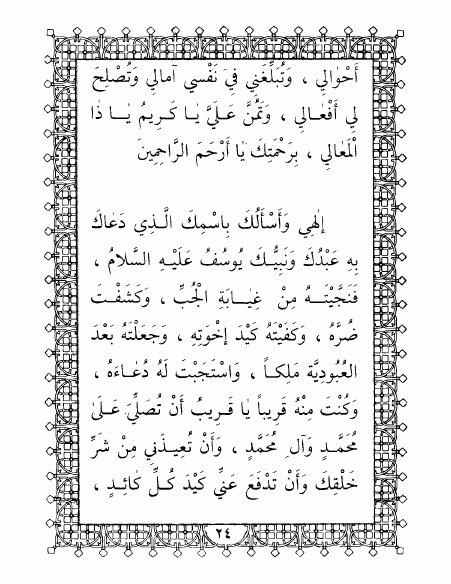 أَحْوالي ، وَتُبَلِّغَني في نَفْسي آمالي وَتُصْلِحَ
لي أَفْعـالي ، وَتَمُنَّ عَـلَيَّ يٰـا كَـريمُ يٰـا ذَا
الْمَعٰالي ، بِرَحْمَتِكَ يٰا أَرْحَمَ الرَّاحِمِينَ
إِلٰهي وَأَسْأَلُكَ بِاسْمِكَ الَّـذِي دَعٰاكَ
بِهِ عَبْدُكَ وَنَبِيُّـكَ يُوسُفُ عَلَيْـهِ السَّلامُ ،
فَنَجَّيْتَـهُ مِنْ غِيٰـابَةِ الْجُبِّ ، وَكَشَفْـتَ
ضُرَّهُ ، وَكَفَيْتَهُ كَيْدَ إِخْوَتِهِ ، وَجَعَلْتَهُ بَعْدَ
الْعُبُودِيَّةِ مَلِكـاً ، وَاسْتَجَبْتَ لَهُ دُعٰـاءَهُ ،
وَكُنْتَ مِنْهُ قَريباً يٰا قَـريبُ أَنْ تُصَلِّيَ عَـلىٰ
مُحَمَّـدٍ وَآلِ مُحَمَّدٍ ، وَأَنْ تُعِيـذَني مِنْ شَرِّ
خَلْقِكَ وَأَنْ تَدْفَعَ عَنِّي كَيْدَ كُـلِّ كٰائِـدٍ ،
٢٤